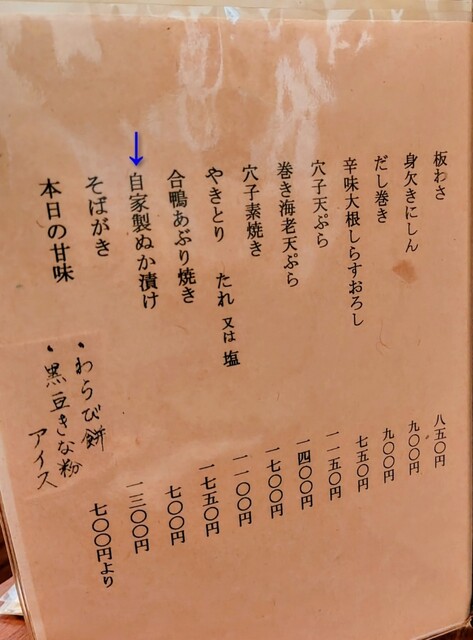 板わさ 八五〇円
身欠きにしん 九〇〇円
だし巻き 九〇〇円
辛味大根しらすおろし 七五〇円
穴子天ぷら 一一五〇円
巻き海老天ぷら 一四〇〇円
穴子素焼き 一七〇〇円
やきとり たれ 又は 塩 一一〇〇円
合鴨あぶり焼き 一七五〇円
自家製ぬか漬け 七〇〇円
そばがき 一三〇〇円
本日の甘味 七〇〇円より
・わらび餅
・黒豆きな粉
アイス